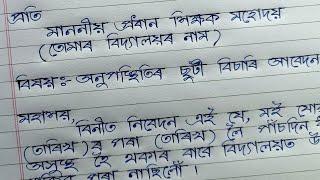 প্ৰতি
মাননীয় প্ৰধান শিক্ষক মহোদয়
(তোমাৰ বিদ্যালয়ৰ নাম)
বিষয়ঃ অনুপস্থিতিৰ ছুটী বিচাৰি আবেদন
মহাশয়,
বিনীত নিবেদন এই যে, মই যো
(তাৰিখ) ৰ পৰা (তাৰিখ) লৈ পাঁচদিন
অসুস্থ হৈ থকাৰ বাবে বিদ্যালয়ত উ
পৰা নাছিলোঁ।